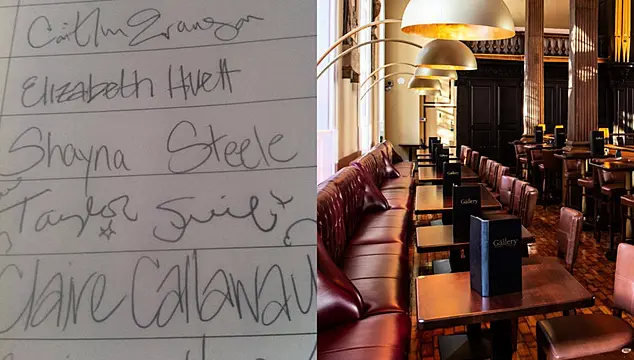 Caitlin
Elizabeth Huett
Shayna Steele
Taylor
Claire Callaway
Gallery
Gallery